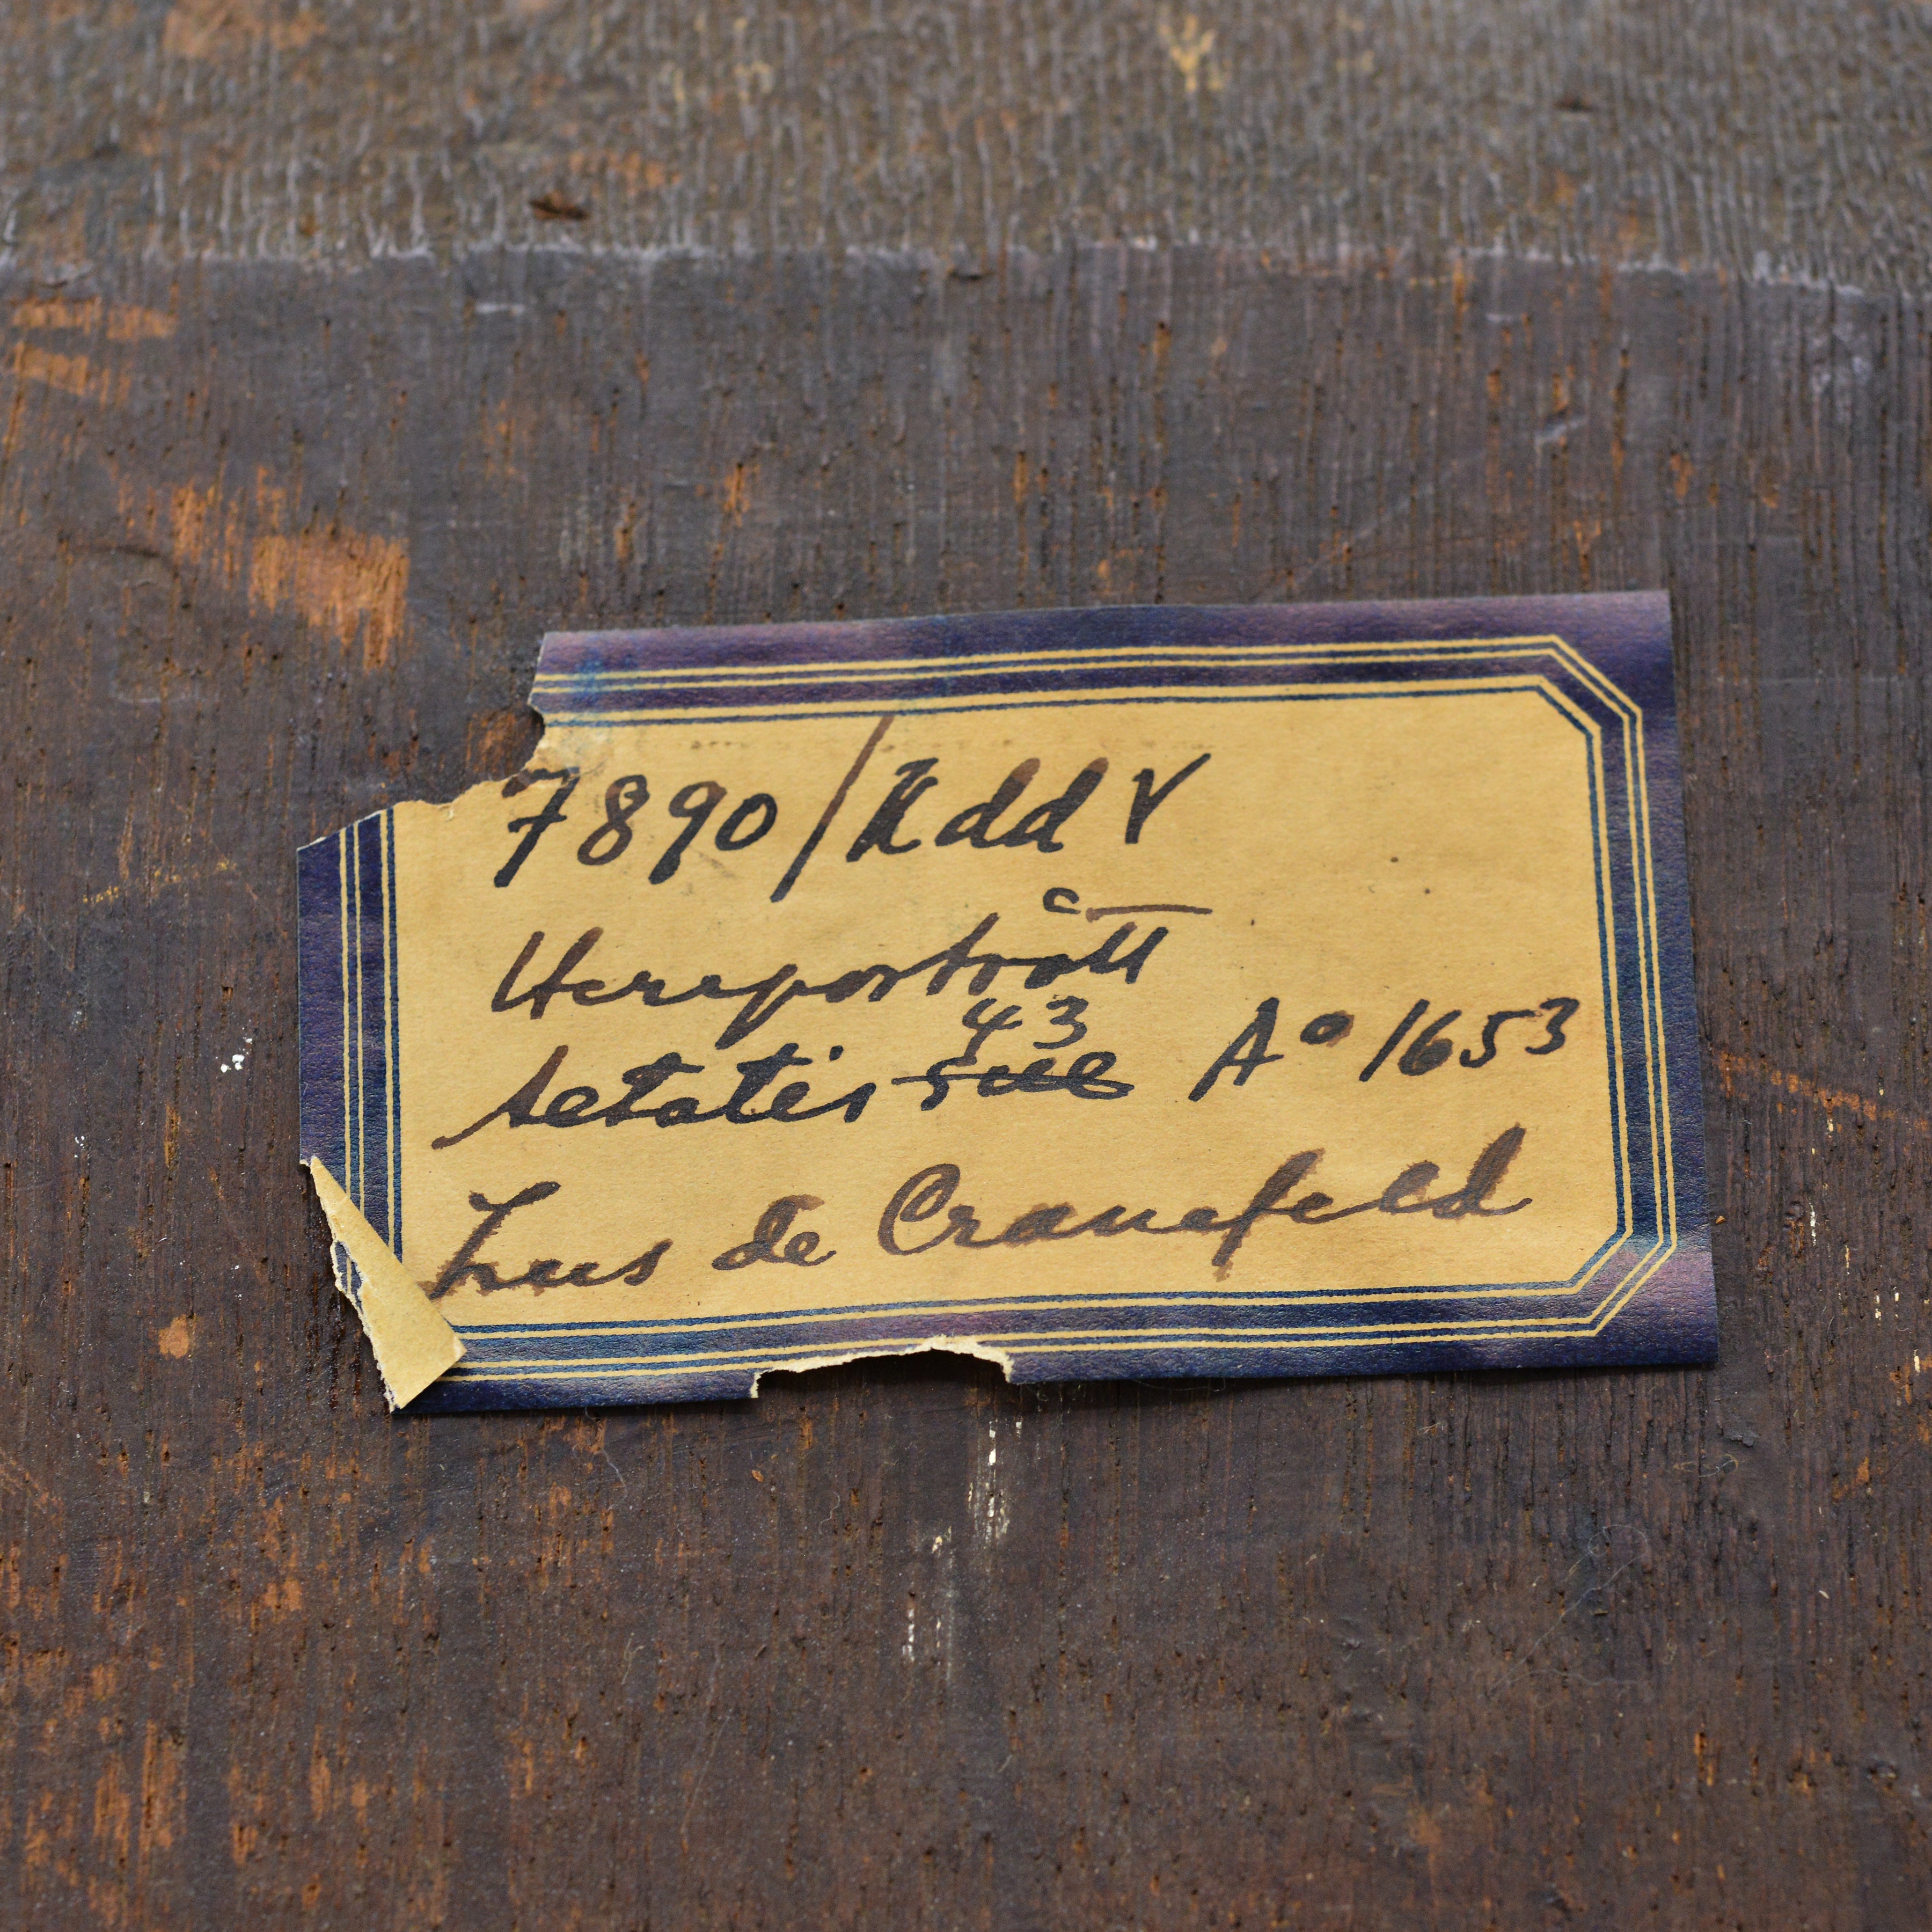 7890/KddV
Herrporträtt
Aetatis sue 43 A° 1653
de Cranefeld